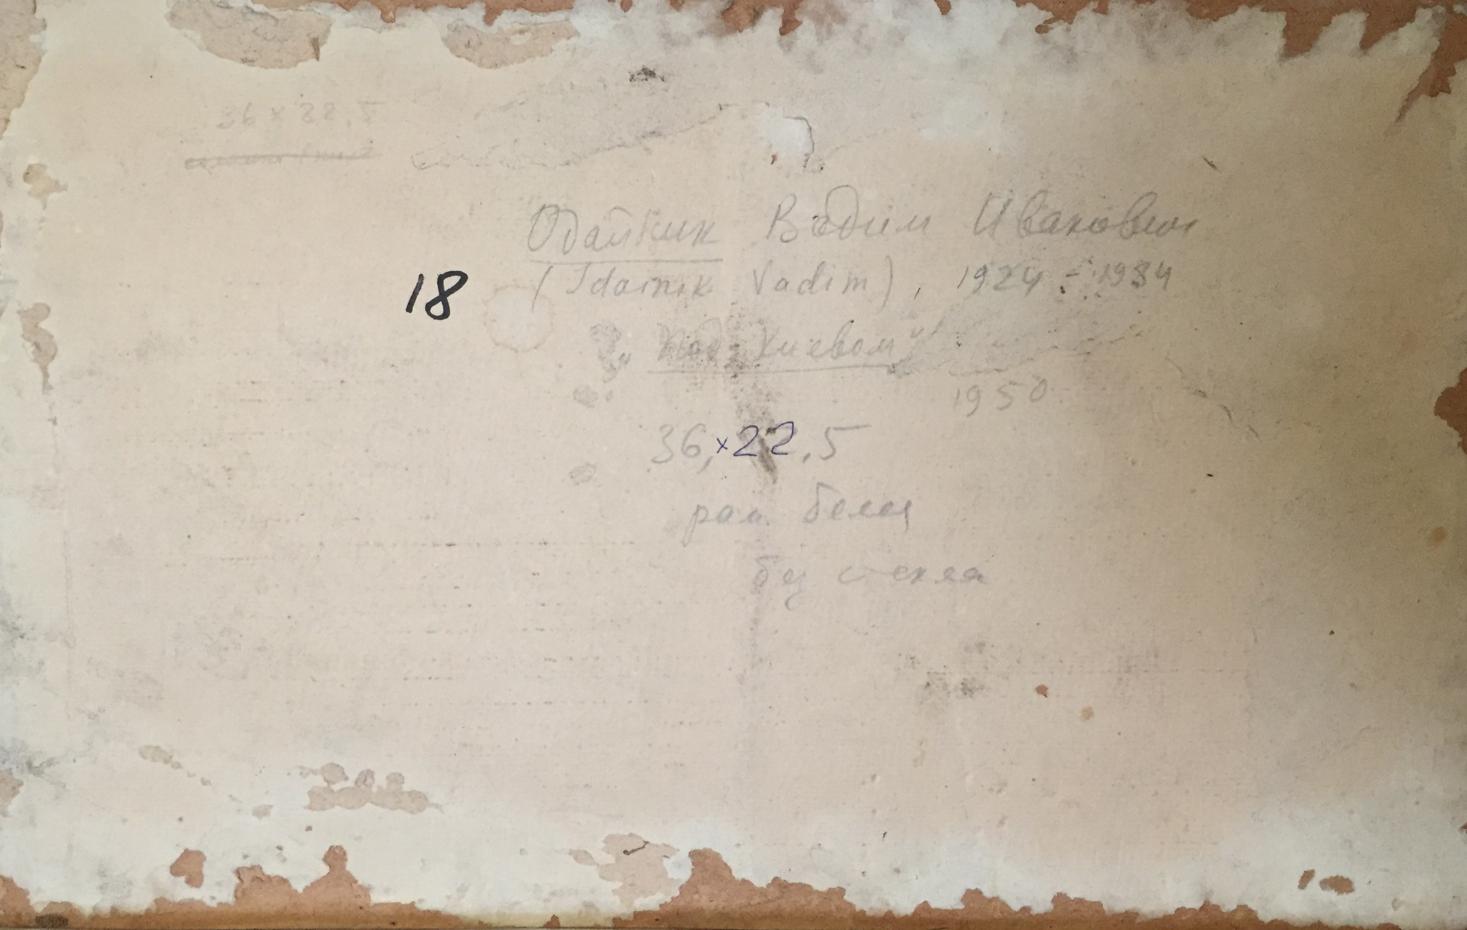 36 x 22,5
Одайник Вадим Иванович
18
(Idainik Vadim), 1924 - 1984
„Под Киевом"
1950
36,x22.5
рам. белы
без стекла